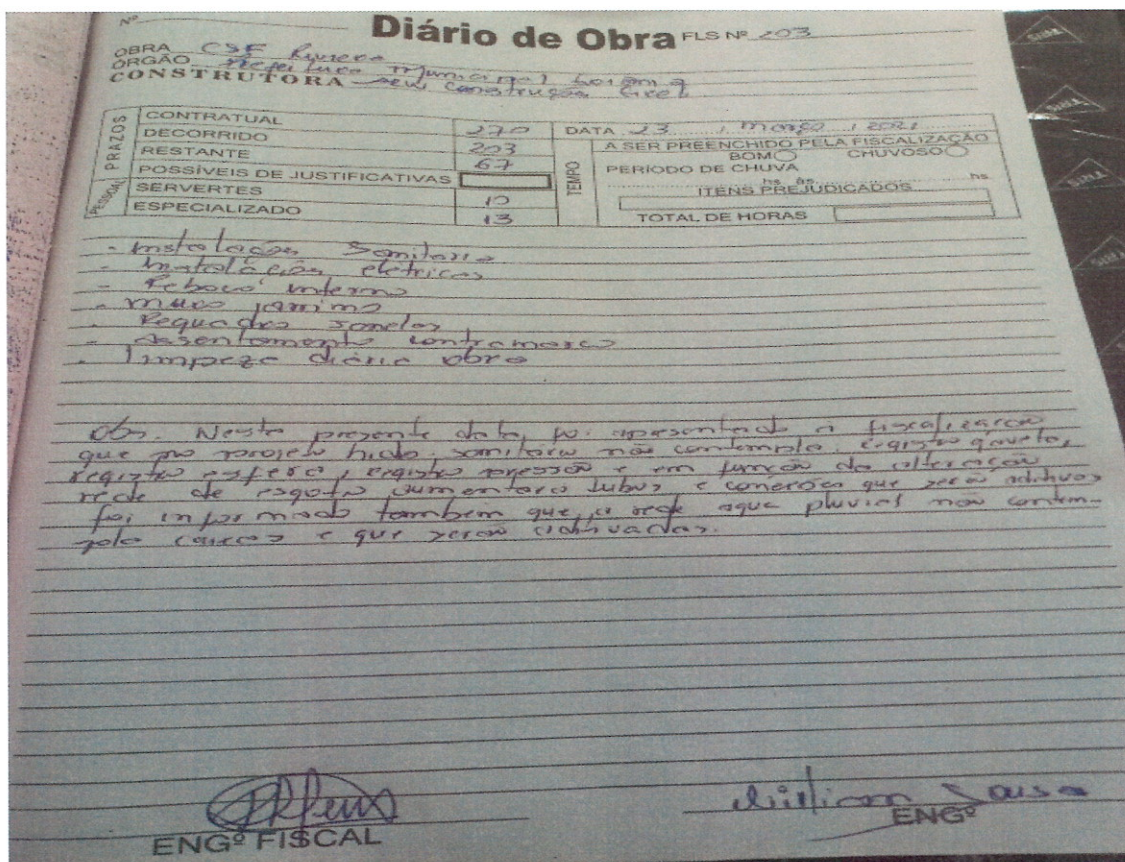 Nº
Diário de Obra FLS Nº 203
OBRA CSF Riviera
ÓRGÃO Prefeitura Municipal
CONSTRUTORA Construção
PRAZOS
CONTRATUAL 270
DECORRIDO 203
RESTANTE 67
POSSÍVEIS DE JUSTIFICATIVAS
PESSOAL
SERVERTES 10
ESPECIALIZADO 13
DATA 23 / março / 2021
TEMPO
A SER PREENCHIDO PELA FISCALIZAÇÃO
BOM CHUVOSO
PERÍODO DE CHUVA
hs às hs
ITENS PREJUDICADOS
TOTAL DE HORAS
- Instalação Sanitaria
- Instalação elétricas
- Reboco interno
- muro
- Requadro janelas
- Assentamento contramarco
- limpeza diária obra
obs. Nesta presente data, foi apresentado a fiscalização
que no projeto hido. sanitário não contempla registro gaveta,
registro esfera, registro pressão e em função da alteração
rede de esgoto aumentara tubos e conexões que serão aditivos
foi informado tambem que, a rede agua pluvial não contem-
pla caixas e que serão
ENGº FISCAL
William Sousa
ENGº